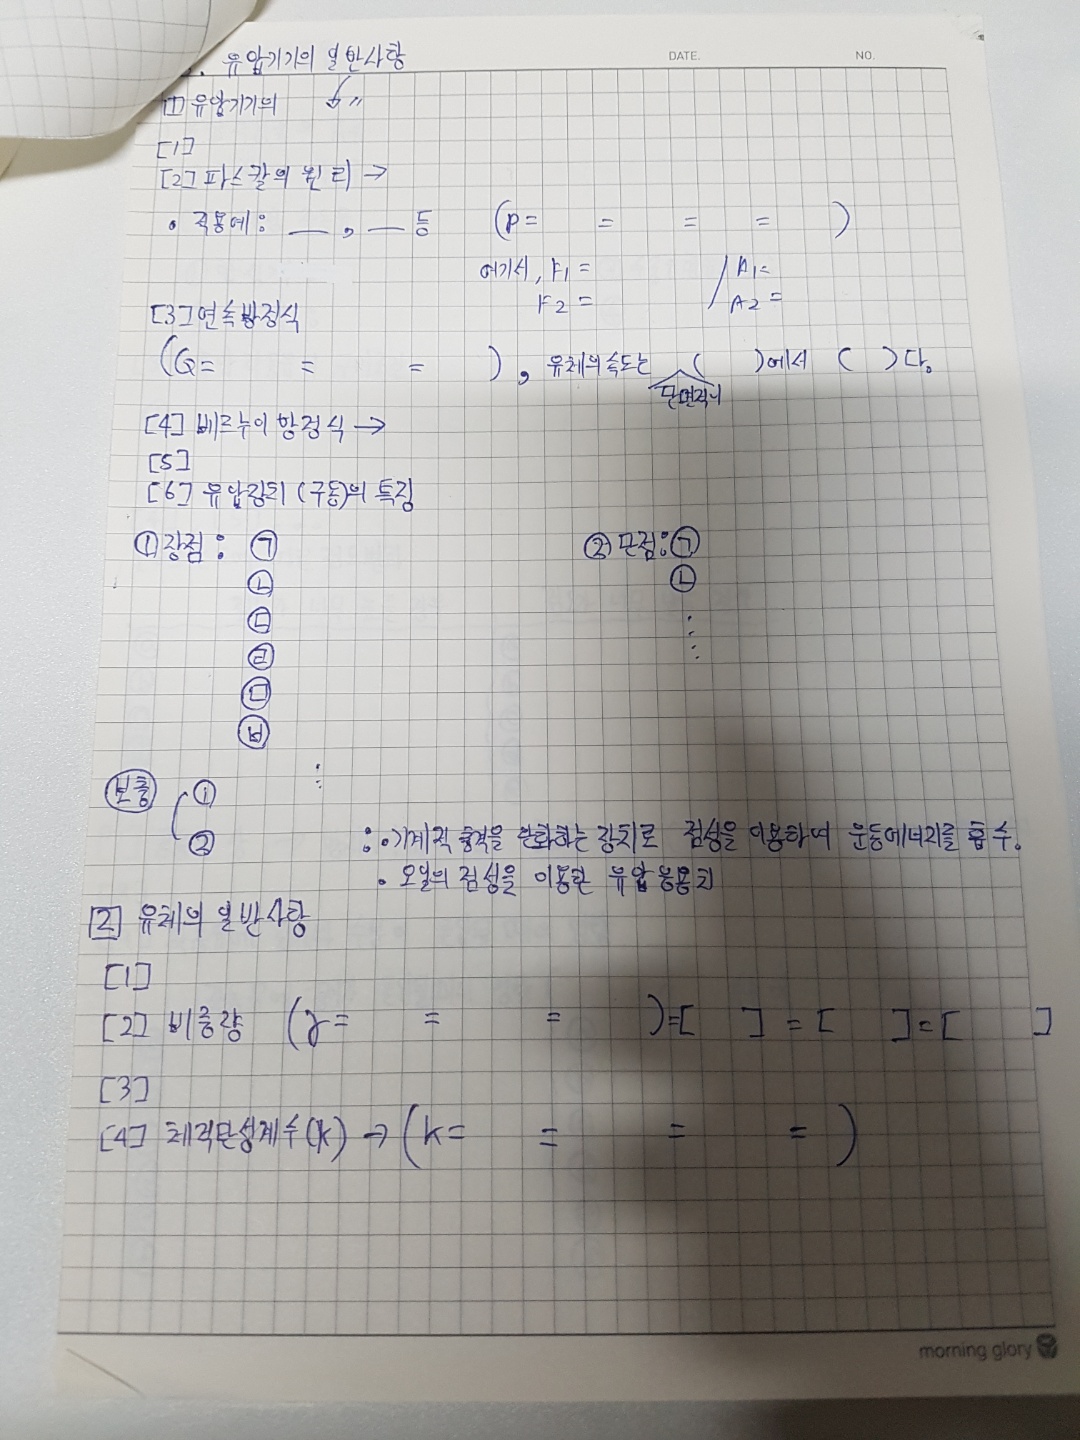 . 유압기기의 일반사항
DATE. NO.
1 유압기기의 〃
[1]
[2] 파스칼의 원리 →
• 적용예: __, __ 등 (P= = = = )
여기서, F1 = / A1=
F2 = A2 =
[3] 연속방정식
(Q= = = ), 유체의 속도는 ( )에서 ( )다.
단면적이
[4] 베르누이 방정식 →
[5]
[6] 유압장치(구동)의 특징
① 장점: ㉠ ② 단점: ㉠
㉡ ㉡
㉢ ⋮
㉣
㉤
㉥
⋮
보충 ①
② : • 기계적 충격을 완화하는 장치로 점성을 이용하여 운동에너지를 흡수.
• 오일의 점성을 이용한 유압응용장치
2 유체의 일반사항
[1]
[2] 비중량 (γ= = = )=[ ] = [ ]=[ ]
[3]
[4] 체적탄성계수(K) → (K= = = = )
morning glory